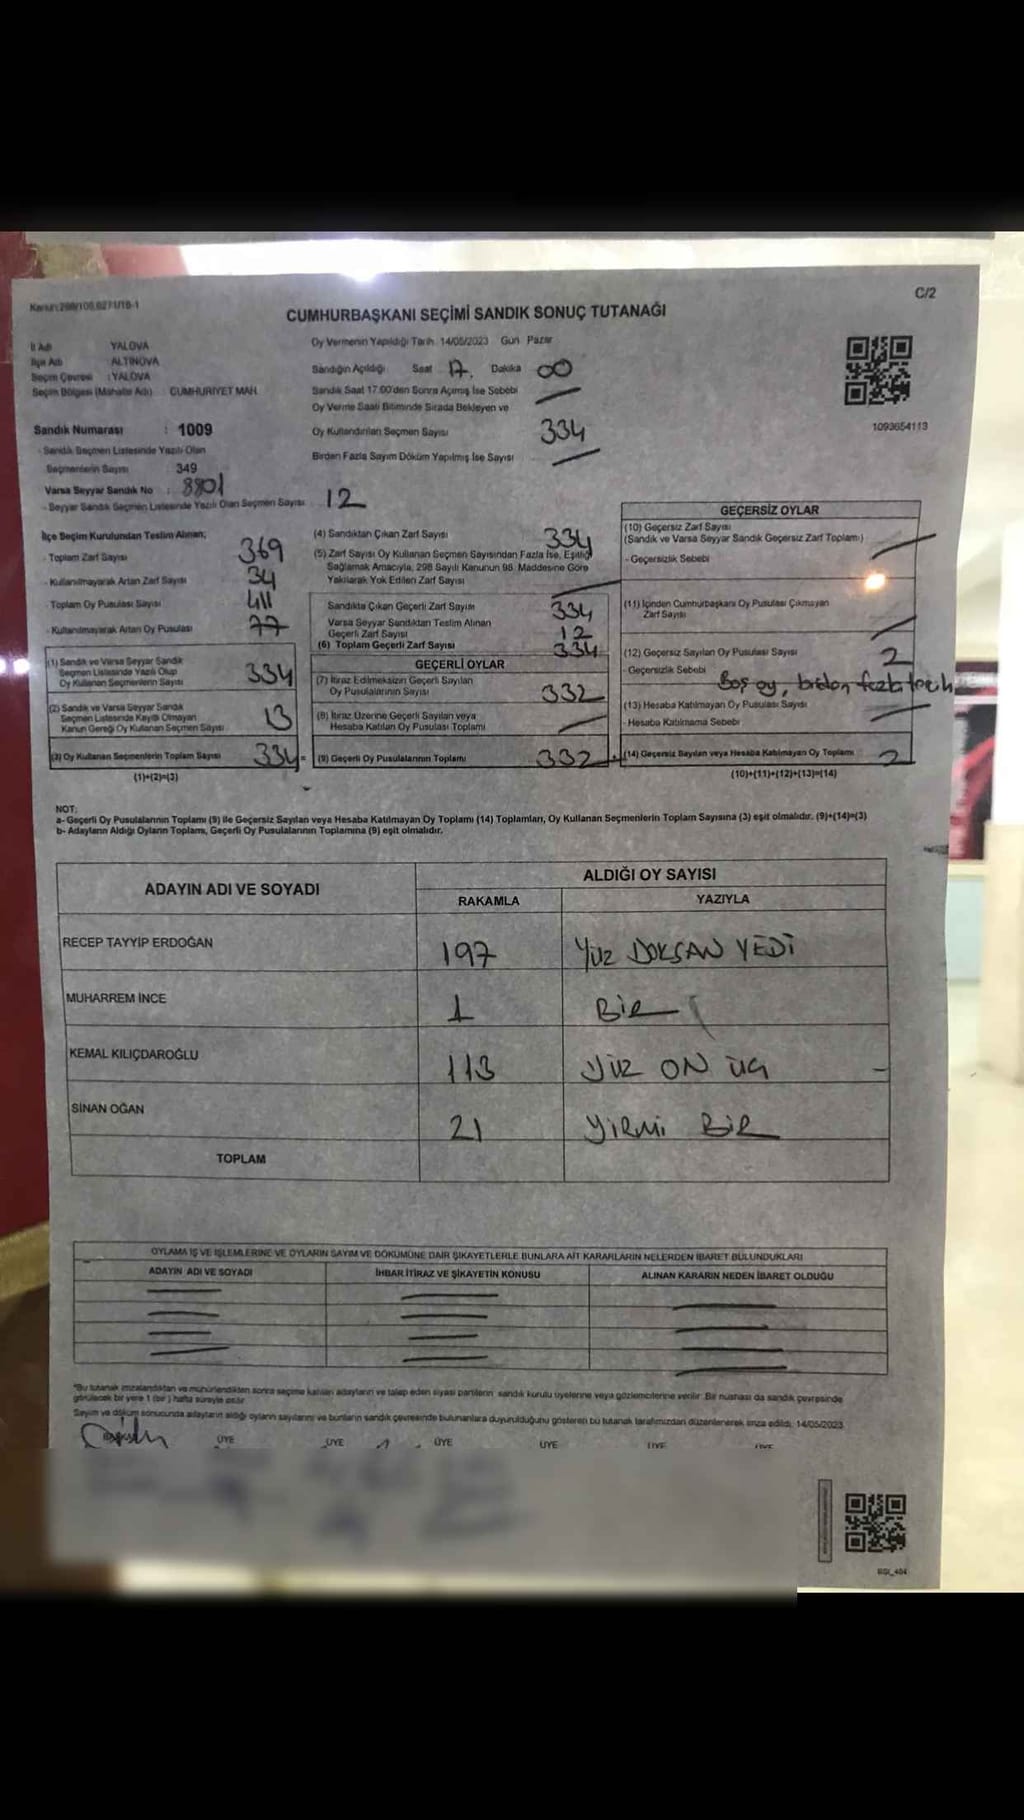 C/2
CUMHURBAŞKANI SEÇİMİ SANDIK SONUÇ TUTANAĞI
İl Adı YALOVA
İlçe Adı ALTINOVA
Seçim Çevresi : YALOVA
Seçim Bölgesi (Mahalle Adı) : CUMHURİYET MAH.
Sandık Numarası : 1009
- Sandık Seçmen Listesinde Yazılı Olan
Seçmenlerin Sayısı 349
Varsa Seyyar Sandık No : 8801
- Seyyar Sandık Seçmen Listesinde Yazılı Olan Seçmen Sayısı 12
Oy Vermenin Yapıldığı Tarih: 14/05/2023 Gün Pazar
Sandığın Açıldığı: Saat 17. Dakika 00
Sandık Saat 17:00'den Sonra Açımış İse Sebebi
Oy Verme Saati Bitiminde Sırada Bekleyen ve
Oy Kullandırılan Seçmen Sayısı 334
Birden Fazla Sayım Döküm Yapılmış İse Sayısı
1093654113
İlçe Seçim Kurulundan Teslim Alınan;
- Toplam Zarf Sayısı 369
- Kullanılmayarak Artan Zarf Sayısı 34
- Toplam Oy Pusulası Sayısı 411
- Kullanılmayarak Artan Oy Pusulası 77
(1) Sandık ve Varsa Seyyar Sandık
Seçmen Listesinde Yazılı Olup
Oy Kullanan Seçmenlerin Sayısı 334
(2) Sandık ve Varsa Seyyar Sandık
Seçmen Listesinde Kayıtlı Olmayan
Kanun Gereği Oy Kullanan Seçmen Sayısı 13
(3) Oy Kullanan Seçmenlerin Toplam Sayısı 334 =
(1)+(2)=(3)
(4) Sandıktan Çıkan Zarf Sayısı 334
(5) Zarf Sayısı Oy Kullanan Seçmen Sayısından Fazla İse, Eşitliği
Sağlamak Amacıyla, 298 Sayılı Kanunun 98. Maddesine Göre
Yakılarak Yok Edilen Zarf Sayısı
Sandıkta Çıkan Geçerli Zarf Sayısı 334
Varsa Seyyar Sandıktan Teslim Alınan
Geçerli Zarf Sayısı 12
(6) Toplam Geçerli Zarf Sayısı 334
GEÇERLİ OYLAR
(7) İtiraz Edilmeksizin Geçerli Sayılan
Oy Pusulalarının Sayısı 332
(8) İtiraz Üzerine Geçerli Sayılan veya
Hesaba Katılan Oy Pusulası Toplamı
(9) Geçerli Oy Pusulalarının Toplamı 332 +
GEÇERSİZ OYLAR
(10) Geçersiz Zarf Sayısı
(Sandık ve Varsa Seyyar Sandık Geçersiz Zarf Toplamı)
- Geçersizlik Sebebi
(11) İçinden Cumhurbaşkanı Oy Pusulası Çıkmayan
Zarf Sayısı
(12) Geçersiz Sayılan Oy Pusulası Sayısı 2
- Geçersizlik Sebebi
Boş oy, birden fazla tercih
(13) Hesaba Katılmayan Oy Pusulası Sayısı
- Hesaba Katılmama Sebebi
(14) Geçersiz Sayılan veya Hesaba Katılmayan Oy Toplamı 2
(10)+(11)+(12)+(13)=(14)
NOT:
a- Geçerli Oy Pusulalarının Toplamı (9) ile Geçersiz Sayılan veya Hesaba Katılmayan Oy Toplamı (14) Toplamları, Oy Kullanan Seçmenlerin Toplam Sayısına (3) eşit olmalıdır. (9)+(14)=(3)
b- Adayların Aldığı Oyların Toplamı, Geçerli Oy Pusulalarının Toplamına (9) eşit olmalıdır.
ADAYIN ADI VE SOYADI ALDIĞI OY SAYISI
RAKAMLA YAZIYLA
RECEP TAYYİP ERDOĞAN 197 YÜZ DOKSAN YEDİ
MUHARREM İNCE 1 BİR
KEMAL KILIÇDAROĞLU 113 YÜZ ON ÜÇ
SİNAN OĞAN 21 YİRMİ BİR
TOPLAM
OYLAMA İŞ VE İŞLEMLERİNE VE OYLARIN SAYIM VE DÖKÜMÜNE DAİR ŞİKAYETLERLE BUNLARA AİT KARARLARIN NELERDEN İBARET BULUNDUKLARI
ADAYIN ADI VE SOYADI İHBAR İTİRAZ VE ŞİKAYETİN KONUSU ALINAN KARARIN NEDEN İBARET OLDUĞU
*Bu tutanak imzalandıktan ve mühürlendikten sonra seçime katılan adayların ve talep eden siyasi partilerin sandık kurulu üyelerine veya gözlemcilerine verilir. Bir nüshası da sandık çevresinde
görülecek bir yere 1 (bir) hafta süreyle asılır.
Sayım ve döküm sonucunda adayların aldığı oyların sayılarını ve bunların sandık çevresinde bulunanlara duyurulduğunu gösteren bu tutanak tarafımızdan düzenlenerek imza edildi. 14/05/2023
ÜYE ÜYE ÜYE ÜYE ÜYE ÜYE